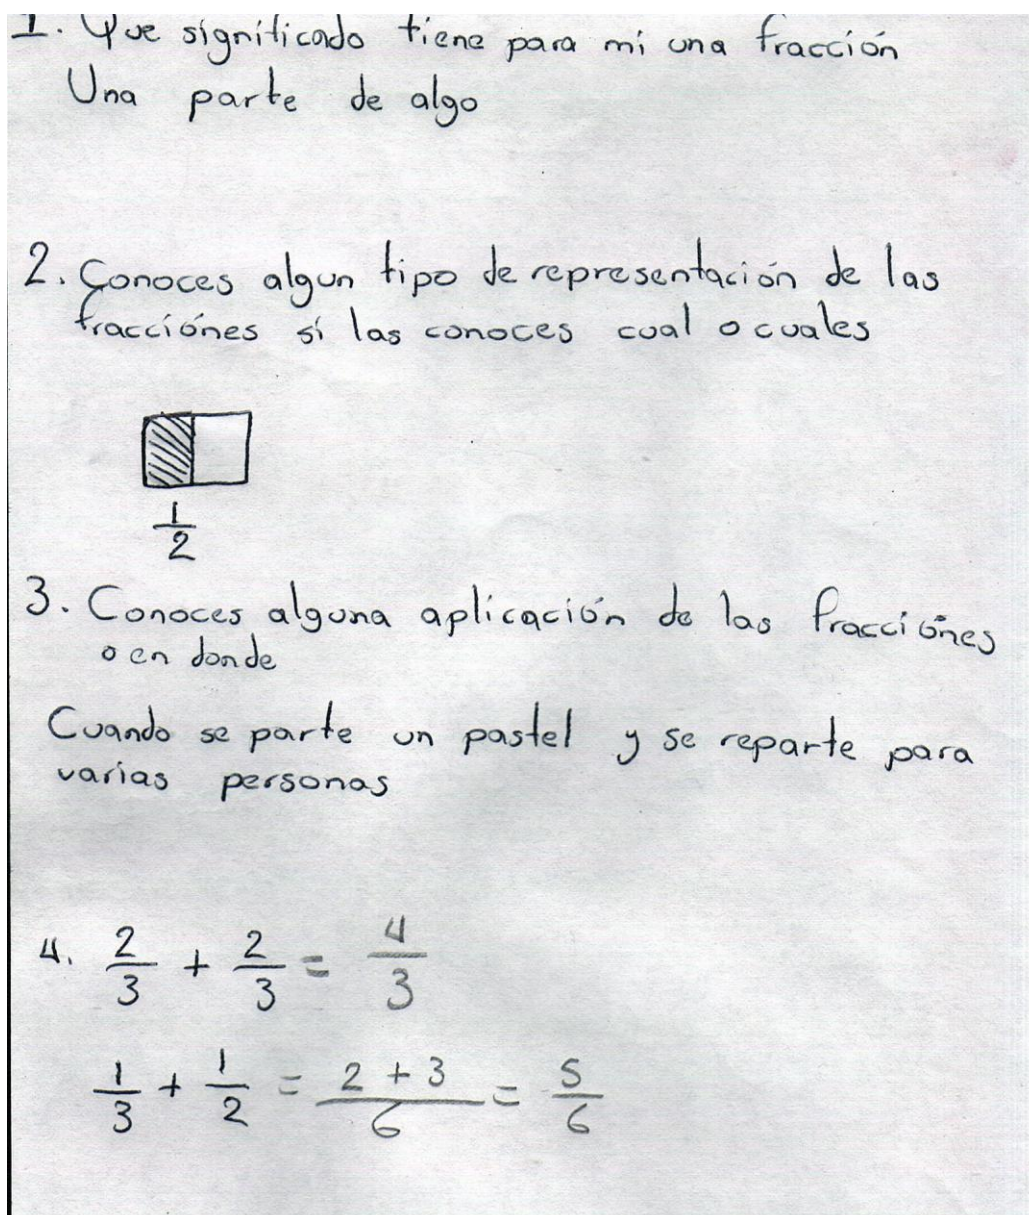 1. Que significado tiene para mi una fracción
Una parte de algo
2. Conoces algun tipo de representación de las
fracciónes si las conoces cual o cuales
1/2
3. Conoces alguna aplicación de las fracciónes
o en donde
Cuando se parte un pastel y se reparte para
varias personas
4. 2/3 + 2/3 = 4/3
1/3 + 1/2 = 2 + 3/6 = 5/6